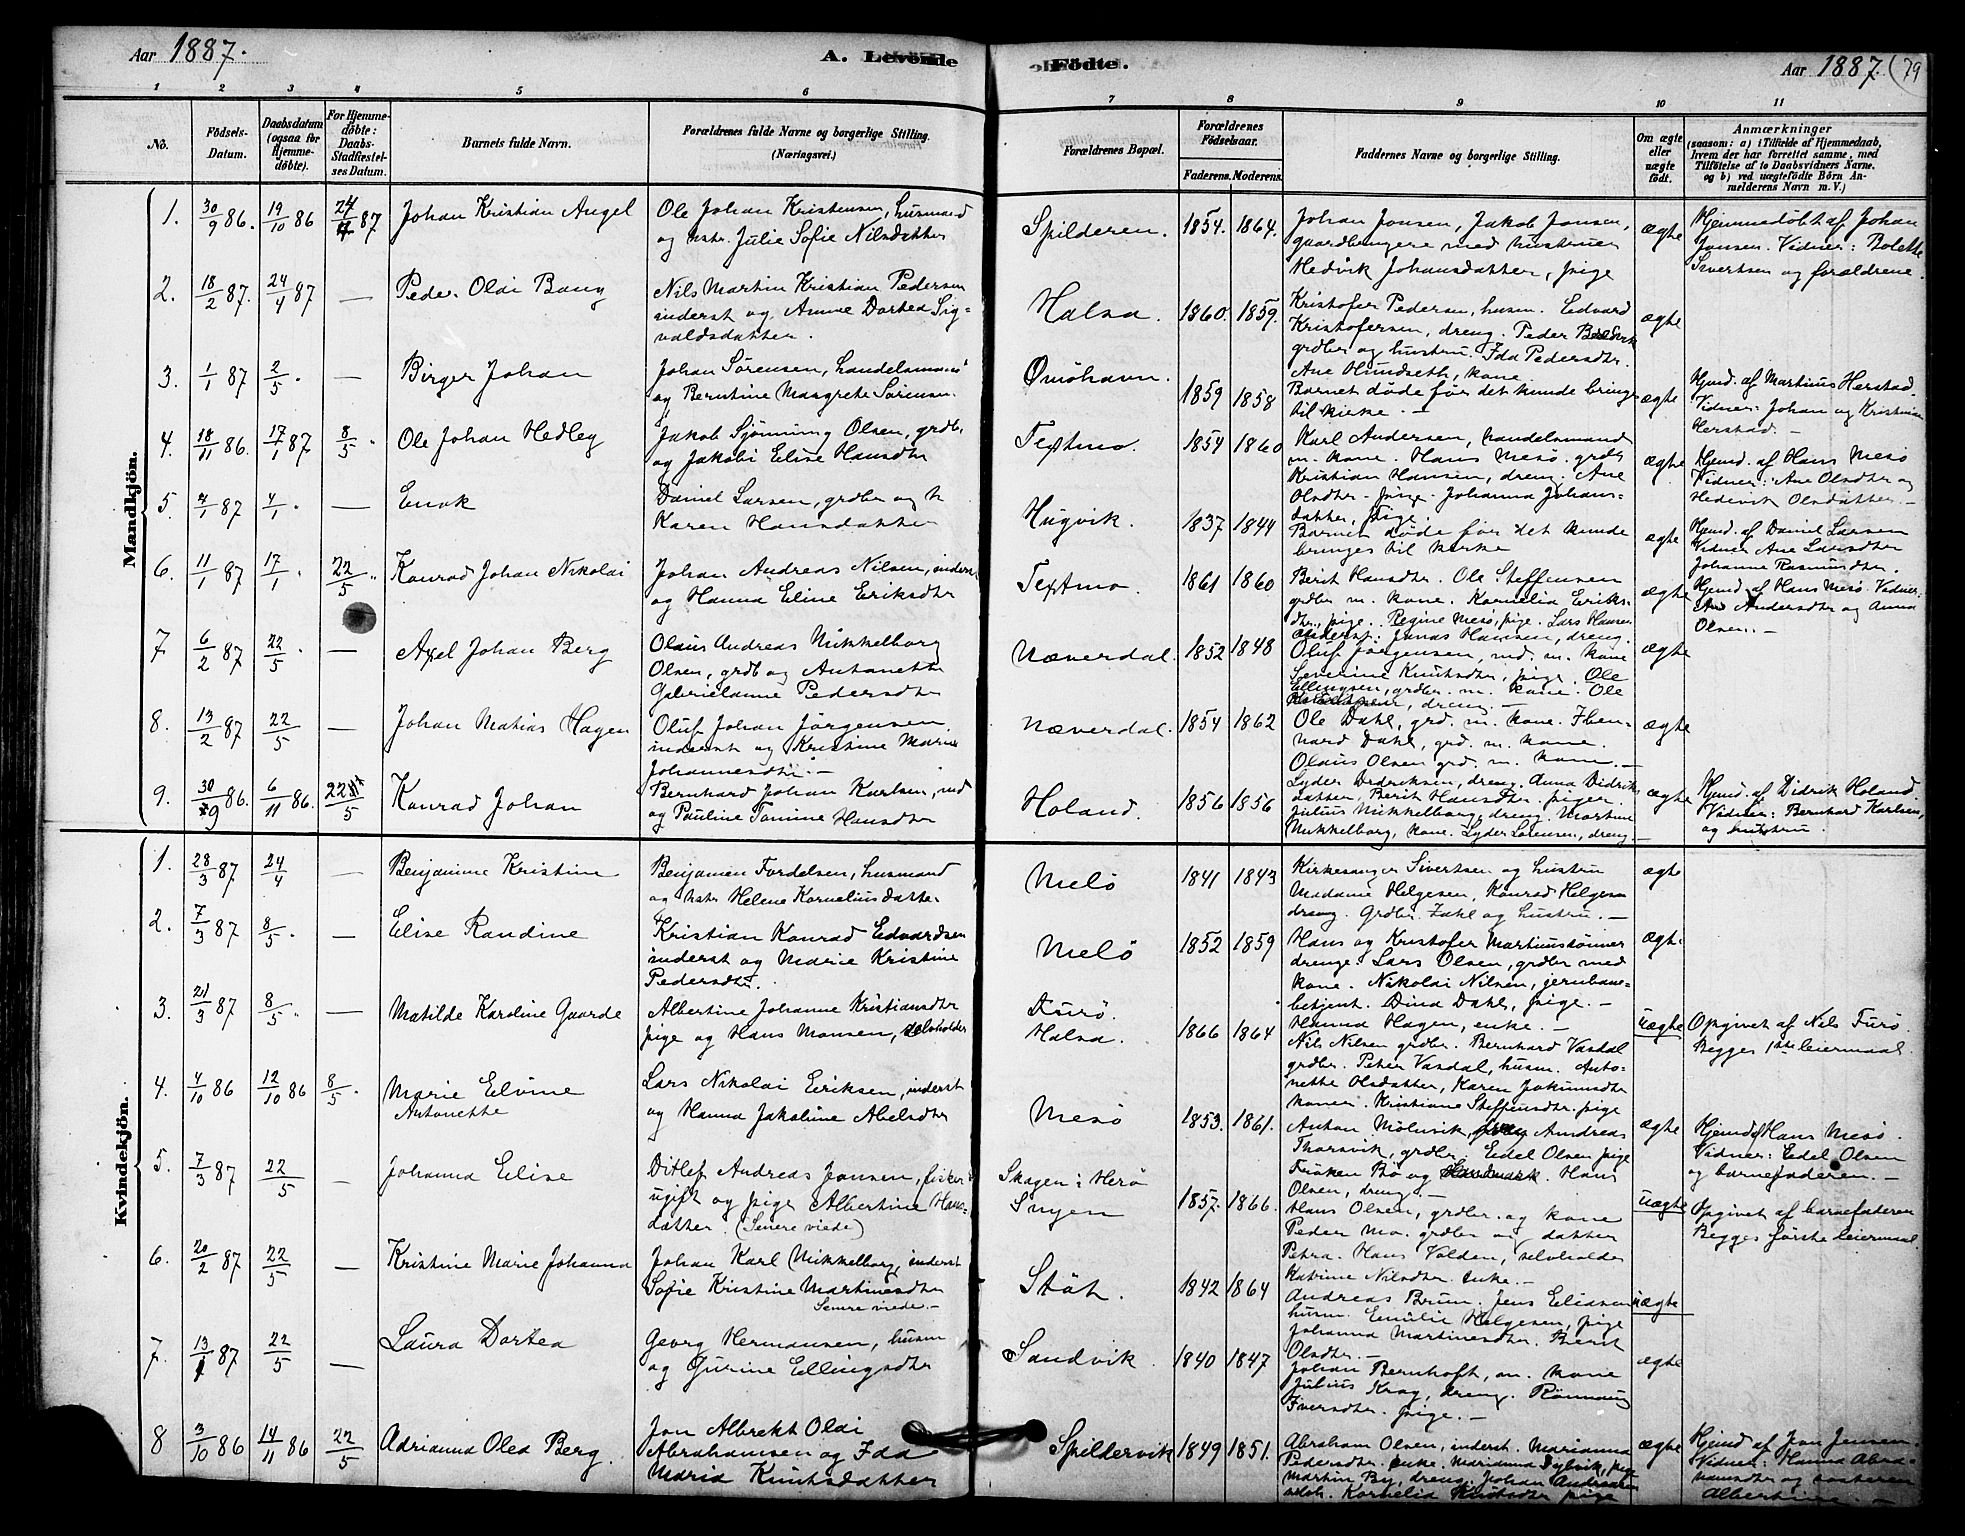 Aar 1887.
A. Levende
Fødte.
Aar 1887. (79
1 2 3 4 5 6
7 8 9 10 11
No.
Fødsels-Datum.
Daabsdatum (ogsaa for Hjemmedøbte).
For Hjemmedøbte: Daabs-Stadfæstelses Datum.
Barnets fulde Navn.
Forældrenes fulde Navne og borgerlige Stilling. (Næringsvei.)
Forældrenes Bopæl.
Forældrenes Fødselsaar.
Faderens. Moderens.
Faddernes Navne og borgerlige Stilling.
Om ægte eller uægte født.
Anmærkninger
(saasom: a) i Tilfælde af Hjemmedaab, hvem der har forrettet samme, med Tilføielse af to Daabsvidners Navne, og b) ved uægtefødte Børn Anmelderens Navn m. V.)
Mandkjön.
1. 30/9 86. 19/10 86 Johan Kristian Angel
Ole Johan Kristensen, husmand
og hstr. Julie Sofie Nilsdatter
Spilderen. 1854. 1864.
Johan Jonsen, Jakob Jonsen,
gaardbrugere med hustruer
Hedvik Johansdatter, pige
ægte
Hjemmedøbt af Johan
Jonsen. Vidner: Bolette
Sivertsen og forældrene.
2. 18/2 87. 24/4 87 — Peder Olai Bang
Nils Martin Kristian Pedersen
inderst og Anne Dortea Sig-
valdsdatter.
Halsa. 1860. 1859.
Kristofer Pedersen, husm. Edvard
Kristofersen, dreng. Peder
grdbr og hustru. Ida Pedersdtr.
Ane Hundseth, kone
ægte
3. 1/1 87 2/5. — Birger Johan
Johan Sørensen, handelsmand
og Berntine Margrete Sørensen.
Ømøhavn. 1859 1858
Barnet døde før det kunde bringes
til kirke. —
ægte
Hjmd. af Martinus Herstad.
Vidner: Johan og Kristine
Herstad. —
4. 18/11 86. 17/1 87 8/5. Ole Johan Hedley
Jakob Sjønning Olsen, grdb.
og Jakobi Elise Hansdtr
Textmo. 1854 1860
Karl Andersen, handelsmand
m. kone. Hans Mesø. grdbr
Kristian Hansen, dreng. Ane
Olsdtr. pige. Johanna Johans-
datter, pige.
ægte
Hjmd. af Hans Mesø
Vidner: Ane Olsdtr og
Hedevik Olsdatter. —
5. 4/1 87 4/1. — Enok
Daniel Larsen, grdbr og h
Karen Hansdatter
Hugvik. 1837 1844
Barnet døde før det kunde
bringes til kirke
ægte
Hjmd. af Daniel Larsen
Vidner Ane Larsdtr
Johanne Rasmusdtr.
6. 11/1 87 17/1. 22/5. Konrad Johan Nikolai
Johan Andreas Nilsen, inderst
og Hanna Eline Eriksdtr
Textmo. 1861 1860
Berit Hansdtr. Ole Steffensen
grdbr m. kone. Kornelia Eriks-
dtr., pige. Regine Mesø, pige. Lars Hansen
inderst. Jonas Hansen, dreng.
ægte
Hjmd. af Hans Mesø. Vidner:
Ane Andersdtr og Anna
Olsen. —
7 6/2 87 22/5 — Axel Johan Berg
Olaus Andreas Mikkelborg
Olsen, grdb og Antonette
Gabrielanne Pedersdtr
Næverdal. 1852 1848
Oluf Jørgensen, ind. m. kone
Severine Knutsdtr, pige. Ole
Ellingsen, grdbr. m. kone. Ole
dreng. —
ægte
8. 13/2 87 22/5 — Johan Matias Hagen
Oluf Johan Jørgensen
inderst og Kristine Marie
Johannesdtr. —
Næverdal. 1854 1862
Ole Dahl, grd. m. kone.
Dahl, grd. m. kone.
Olaus Olsen grd. m. kone. —
ægte
9. 30/9 86. 6/11 86. 22/5 Konrad Johan
Bernhard Johan Karlsen, ind
og Pauline Tomine Hansdtr
Holand. 1856 1856
Lyder Dedriksen, dreng. Anna Didriks
datter, Berit Hansdtr. piger.
Julius Mikkelborg, dreng. Martine
Mikkelborg, kone. Lyder Sørensen, dreng. —
ægte
Hjmd. af Didrik Holand
Vidner: Bernhard Karlsen,
og hustru.
Kvindekjön.
1. 28/3 87 24/4 — Benjamine Kristine
Benjamin Fordelsen, husmand
og hstr Helene Korneliusdatter
Melö 1841 1843
Kirkesanger Sivertsen og hustru
Madame Helgesen, Konrad Helgesen
dreng. Grdbr. Dahl og hustru. —
ægte
2. 7/3 87 8/5. — Elise Randine
Kristian Konrad Edvardsen
inderst og Marie Kristine
Pedersdtr.
Melö 1852 1859
Hans og Kristofer Martinussønner
drenge. Lars Olsen, grdbr med
kone. Nikolai Nilsen, jernbane-
betjent. Dina Dahl, pige. —
Hanna Hagen, enke. —
ægt.
3. 21/3 87 8/5. — Matilde Karoline Gaarde
Albertine Johanne Kristiansdtr
pige og Hans Monsen, selvholder
Furö.
Halsa. 1866 1864
Nils Nilsen grdbr. Bernhard Vasdal
grdbr. Peter Vasdal, husm. Anto-
nette Olsdatter, Karen Jokumsdtr
koner. Kristiane Steffensdtr. pige
uægte
Opgivet af Nils Furö.
Begges 1ste leiermaal.
4. 4/10 86 12/10 86 8/5. Marie Elvine
Antonette
Lars Nikolai Eriksen, inderst
og Hanna Jakobine Abelsdtr
Mesø 1853. 1861.
Anton Molvik, Andreas
Thorsvik, grdbr, Edel Olsen pige
Frøken Bö og Handmark. Hans
Olsen, dreng. —
ægte
Hjemd. Hans Mesø.
Vidner: Edel Olsen
og barnefaderen. —
5. 7/3 87 22/5 — Johanna Elise
Ditlef Andreas Jonsen, fisker
ugift og pige Albertine Hans-
datter. (Senere viede)
Skagen i Herø
Snyen 1857. 1866.
Hans Olsen, grdbr. og kone
Peder Mo. grdbr og datter
Petra. Hans Volden, selvholder
Katrine Nilsdtr. enke. —
uægte
Opgivet af barnefaderen
Begges første leiermaal.
6. 20/2 87 22/5 — Kristine Marie Johanna
Johan Karl Mikkelborg, inderst
Sofie Kristine Martinesdtr
Senere viede. —
Stöt. 1842 1864
Andreas Brun. Jens Eliasen
husm. Emilie Helgesen, pige
Johanna Martinesdtr. Berit
Olsdtr. —
uægte
7. 13/1 87 22/5 — Laura Dortea
Georg Hermansen, husm
og Gurine Ellingsdtr
Sandvik. 1840 1847
Johan Bernhoft, m. kone
Julius Krog, dreng. Rønnaug
Iversdtr. pige. —
ægte
8 3/10 86 14/11 86 22/5 Adrianna Olea Berg.
Jon Albrekt Olai
Abrahamsen og Ida
Maria Knutsdatter
Spildervik 1849 1851.
Abraham Olsen, inderst. Marianna
Pedersdtr. enke. Marianna Dylvik, pige
Martin By, dreng. Johan Andreasen
selvh. Kornelia Knutsdtr pige
ægte
Hjmd af Jon Jensen.
Vidner: Hanna Abra-
hamsdtr og søsteren
Albertine. —